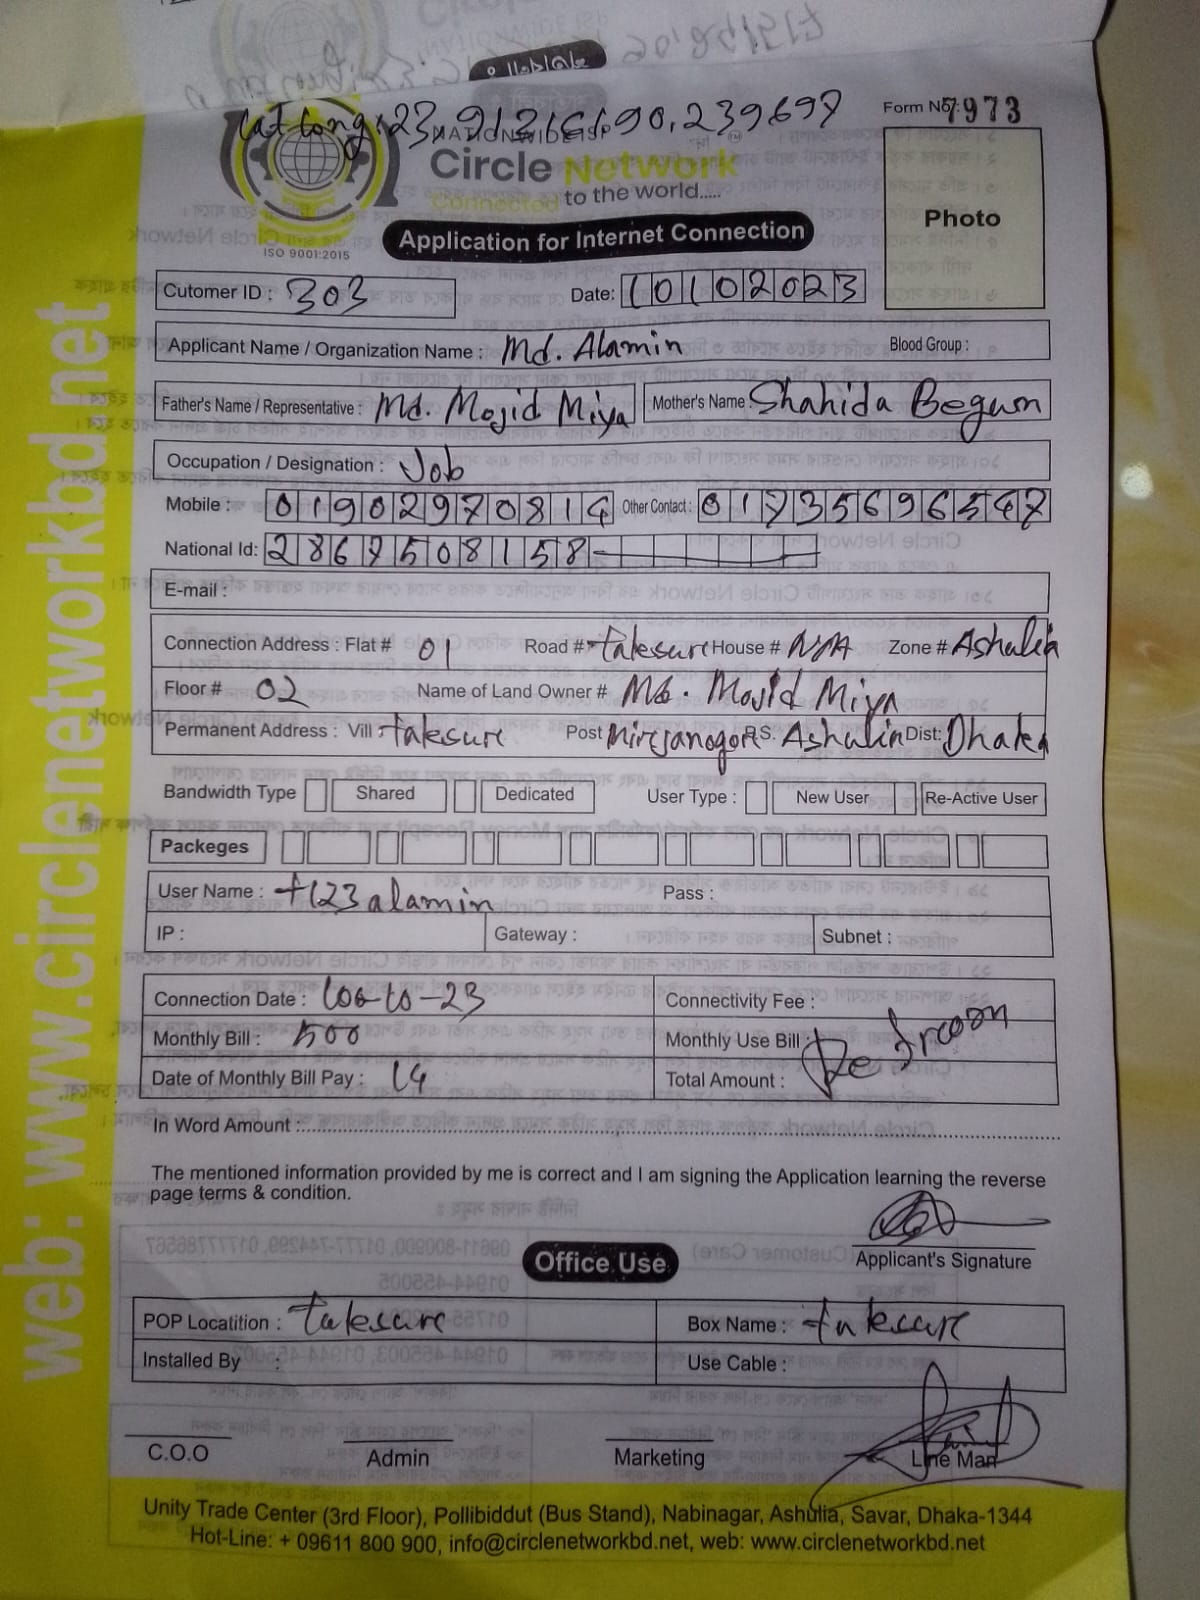 Lat Long: 23.913616, 90.239697
Form No: 7973
NATIONWIDE ISP
Circle Network
Connected to the world.....
ISO 9001:2015
Photo
Application for Internet Connection
Cutomer ID : 303 Date: 10102023
Applicant Name / Organization Name : Md. Alamin Blood Group :
Father's Name / Representative : Md. Mojid Miya Mother's Name : Shahida Begum
Occupation / Designation : Job
Mobile : 01902970814 Other Contact : 01735696547
National Id: 2867508158
E-mail :
Connection Address : Flat # 01 Road # takesure House # N/A Zone # Ashulia
Floor # 02 Name of Land Owner # Md. Mojid Miya
Permanent Address : Vill takesure Post Mirejanogor P.S. Ashulia Dist: Dhaka
Bandwidth Type Shared Dedicated User Type : New User Re-Active User
Packeges
User Name : t123alamin Pass :
IP : Gateway : Subnet :
Connection Date : 10-10-23 Connectivity Fee :
Monthly Bill : 500 Monthly Use Bill :
Date of Monthly Bill Pay : 14 Total Amount :
In Word Amount :
The mentioned information provided by me is correct and I am signing the Application learning the reverse
page terms & condition.
Applicant's Signature
Office Use
POP Locatition : takesure Box Name : takesure
Installed By : Use Cable :
C.O.O Admin Marketing Line Man
Unity Trade Center (3rd Floor), Pollibiddut (Bus Stand), Nabinagar, Ashulia, Savar, Dhaka-1344
Hot-Line: + 09611 800 900, info@circlenetworkbd.net, web: www.circlenetworkbd.net
web: www.circlenetworkbd.net